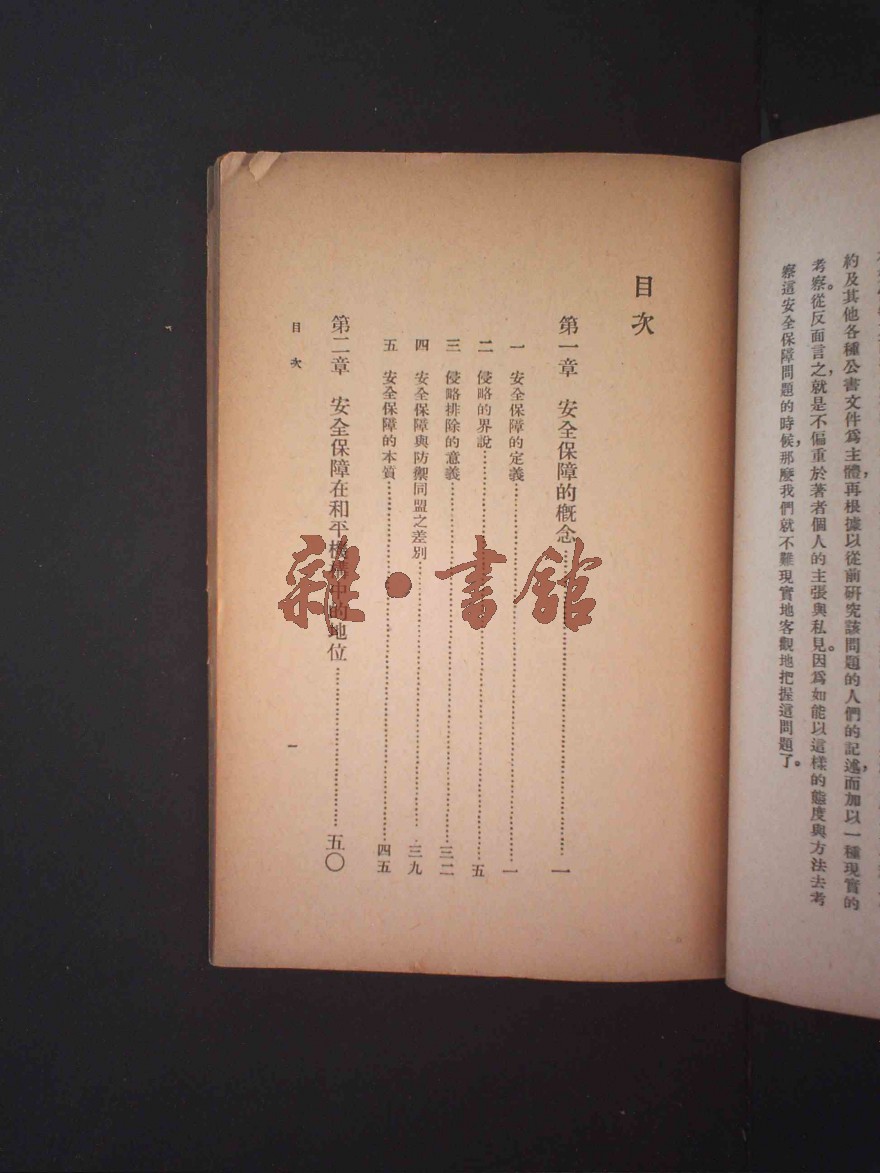 約及其他各種公書文件爲主體，再根據以從前研究該問題的人們的記述，而加以一種現實的
考察。從反面言之，就是不偏重於著者個人的主張與私見。因爲如能以這樣的態度與方法去考
察這安全保障問題的時候，那麽我們就不難現實地客觀地把握這問題了。
目次
第一章 安全保障的槪念……一
一 安全保障的定義……一
二 侵略的界說……五
三 侵略排除的意義……三二
四 安全保障與防禦同盟之差別……三九
五 安全保障的本質……四五
第二章 安全保障在和平機構中的地位……五〇
目次 一
雜·書館